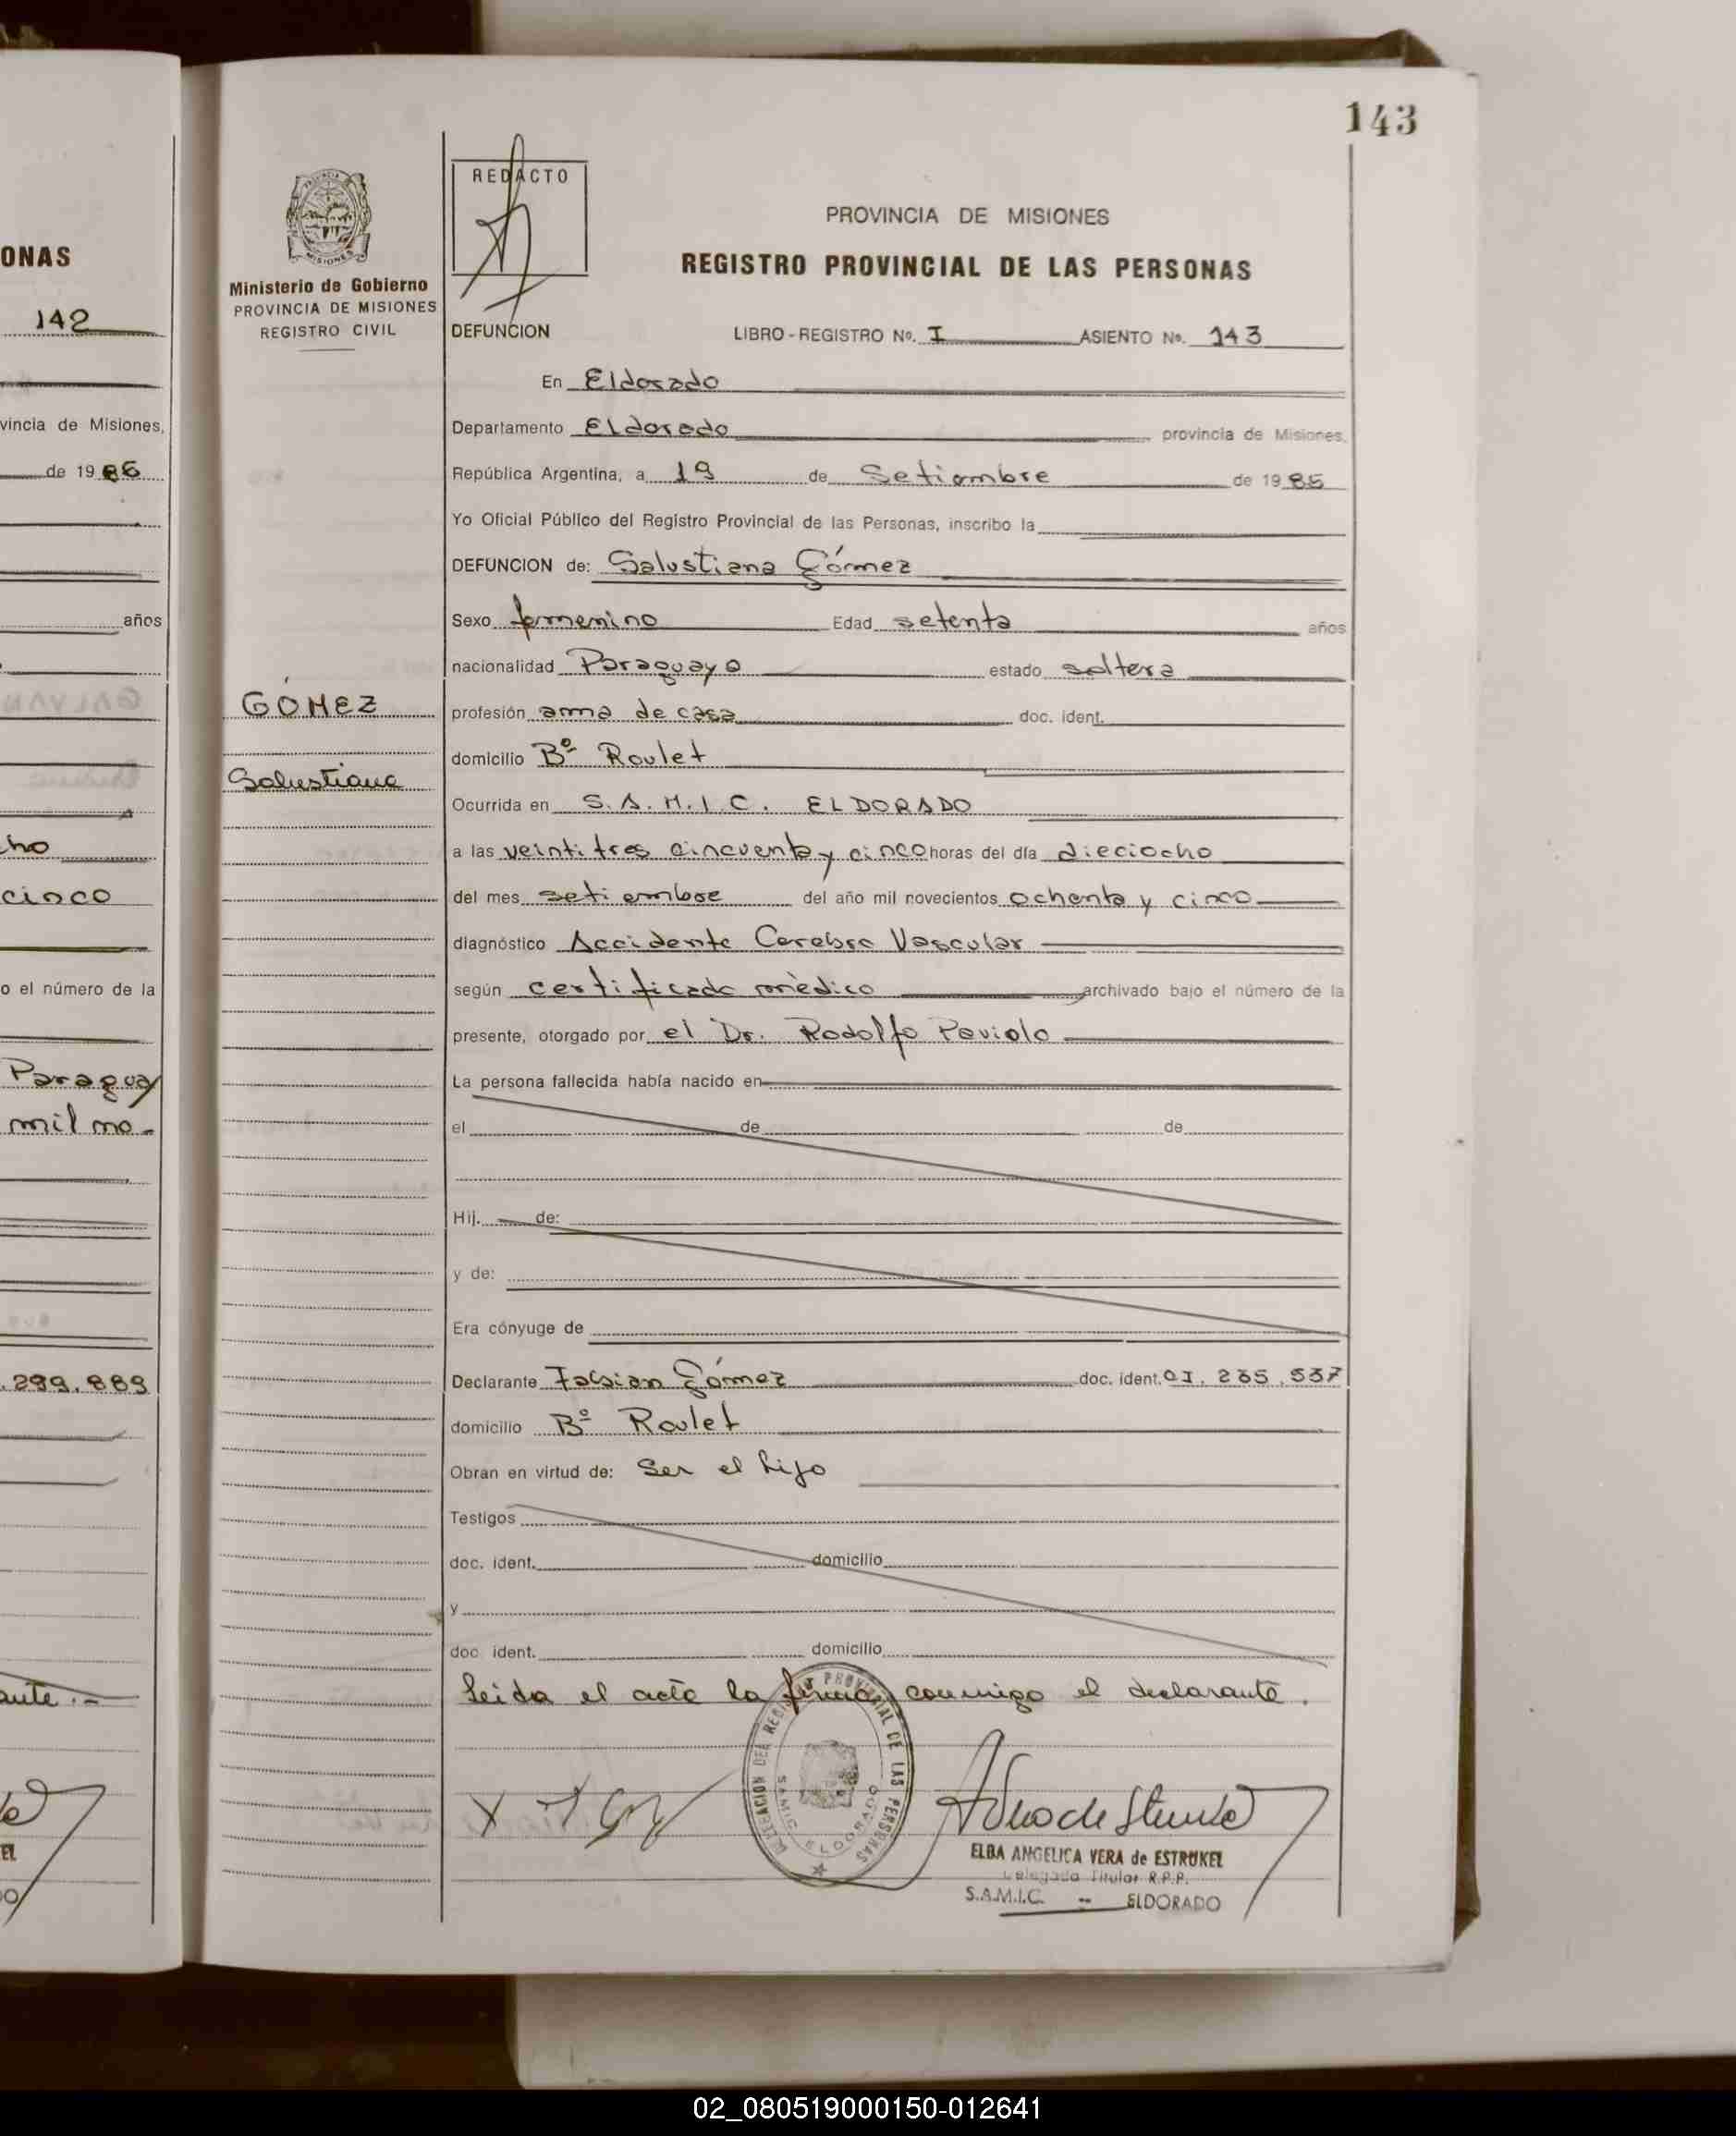 143
ONAS
142
vincia de Misiones,
de 1986
años
cho
cinco
o el número de la
Paraguay
mil no-
.299.889
ante.-
Ministerio de Gobierno
PROVINCIA DE MISIONES
REGISTRO CIVIL
GÓMEZ
Salustiana
REDACTO
PROVINCIA DE MISIONES
REGISTRO PROVINCIAL DE LAS PERSONAS
DEFUNCION LIBRO-REGISTRO No. I ASIENTO No. 143
En Eldorado
Departamento Eldorado provincia de Misiones,
República Argentina, a 19 de Setiembre de 1985
Yo Oficial Público del Registro Provincial de las Personas, inscribo la
DEFUNCION de: Salustiana Gómez
Sexo femenino Edad setenta años
nacionalidad Paraguaya estado soltera
profesión ama de casa doc. ident.
domicilio Bº Roulet
Ocurrida en S.A.M.I.C. ELDORADO
a las veintitres cincuenta y cinco horas del día dieciocho
del mes setiembre del año mil novecientos ochenta y cinco
diagnóstico Accidente Cerebro Vascular
según certificado mèdico archivado bajo el número de la
presente, otorgado por el Dr. Rodolfo Paviolo
La persona fallecida había nacido en
el de de
Hij. de:
y de:
Era cónyuge de
Declarante Fabian Gómez doc. ident. 01.235.537
domicilio Bº Roulet
Obran en virtud de: Ser el hijo
Testigos
doc. ident. domicilio
y
doc. ident. domicilio
Leida el acta la firma conmigo el declarante.
DELEGACION DEL REGISTRO PROVINCIAL DE LAS PERSONAS
SAMIC ELDORADO
ELBA ANGELICA VERA de ESTRUKEL
Delegada Titular R.P.P.
S.A.M.I.C. -- ELDORADO
02_080519000150-012641